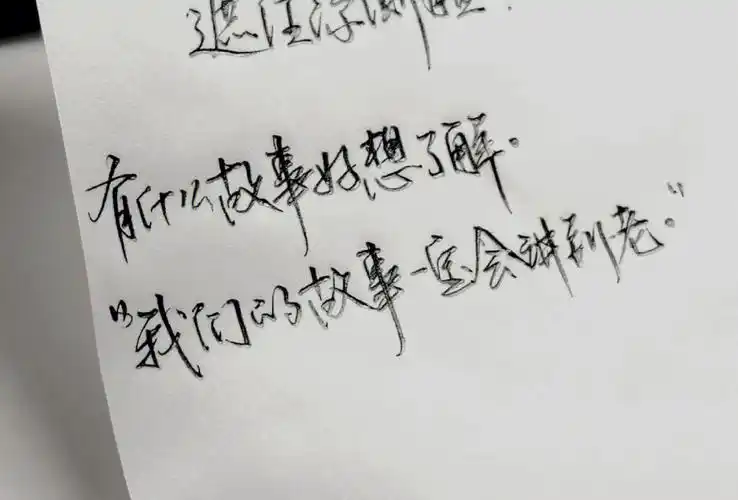 有什么故事好想了解.
"我们的故事一定会讲到老."